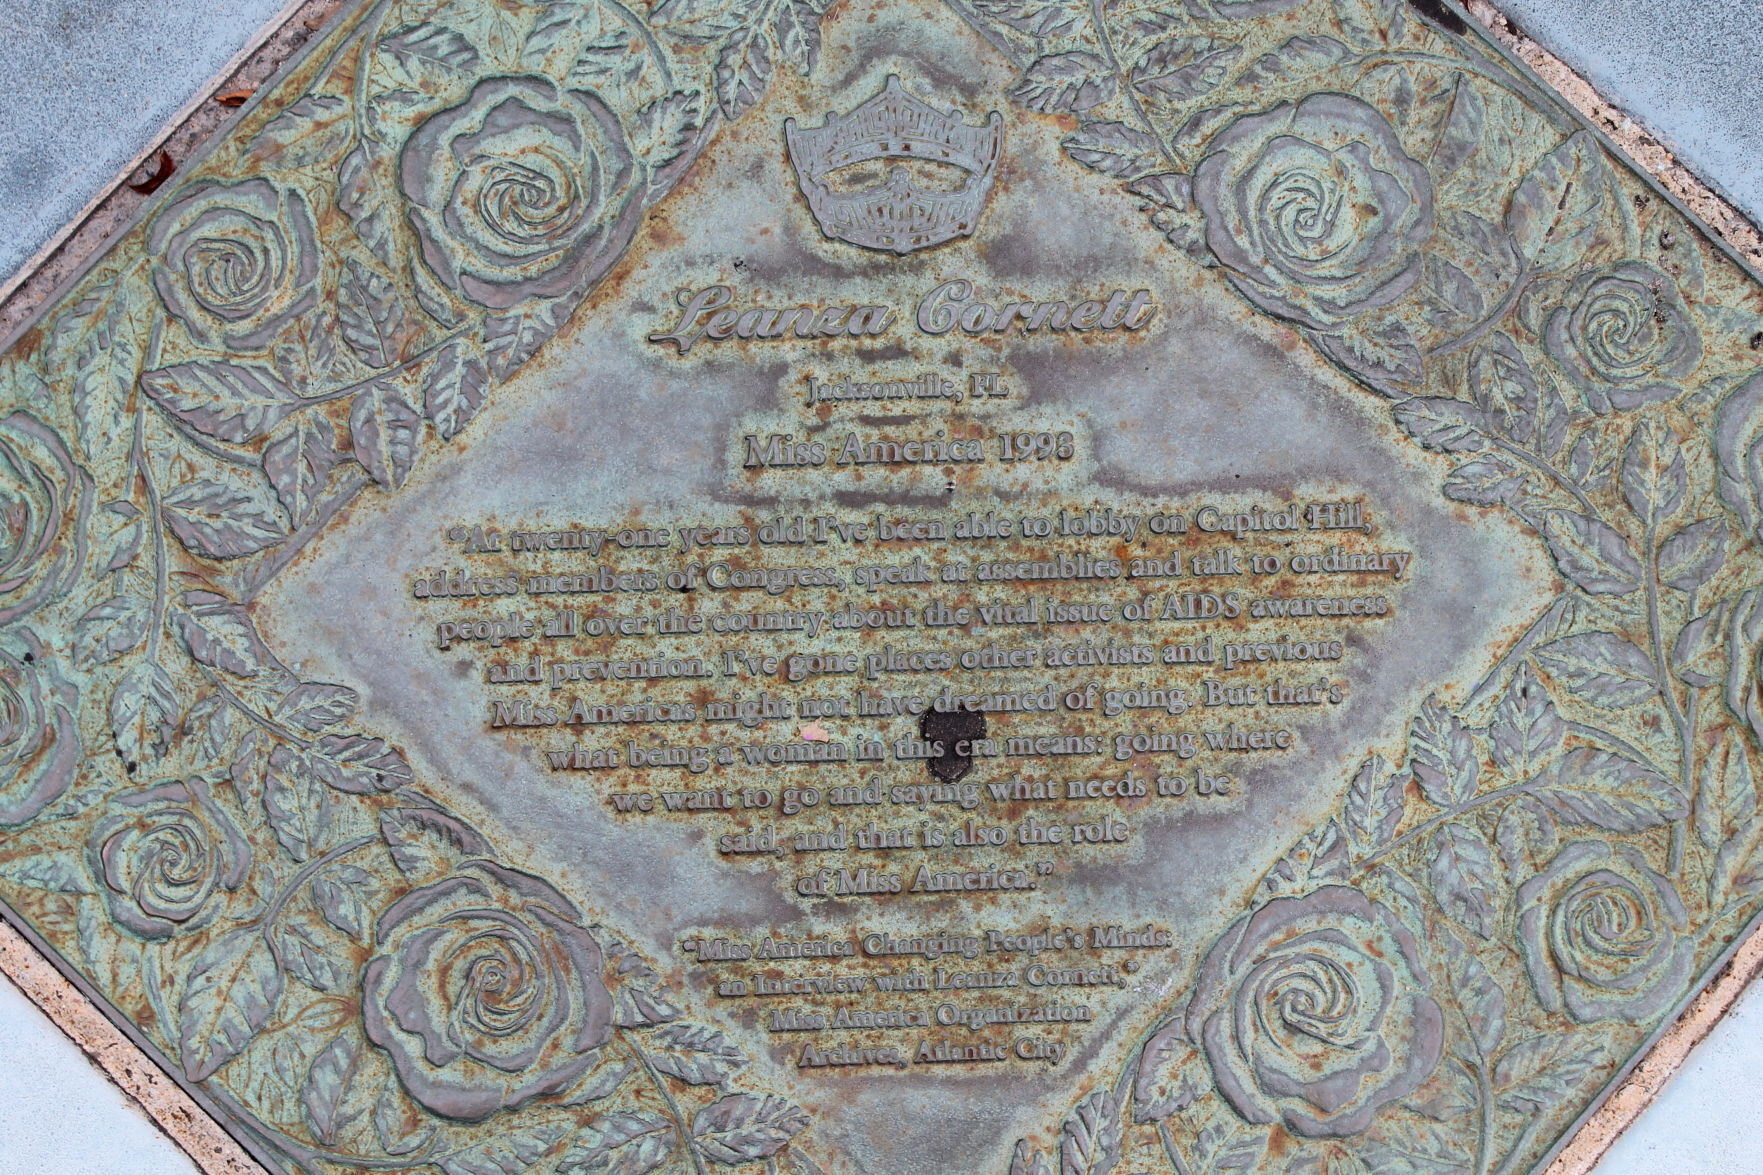 Leanza Cornett
Jacksonville, FL
Miss America 1993
"At twenty-one years old I've been able to lobby on Capitol Hill,
address members of Congress, speak at assemblies and talk to ordinary
people all over the country about the vital issue of AIDS awareness
and prevention. I've gone places other activists and previous
Miss Americas might not have dreamed of going. But that's
what being a woman in this era means: going where
we want to go and saying what needs to be
said, and that is also the role
of Miss America."
"Miss America Changing People's Minds:
an Interview with Leanza Cornett,"
Miss America Organization
Archives, Atlantic City